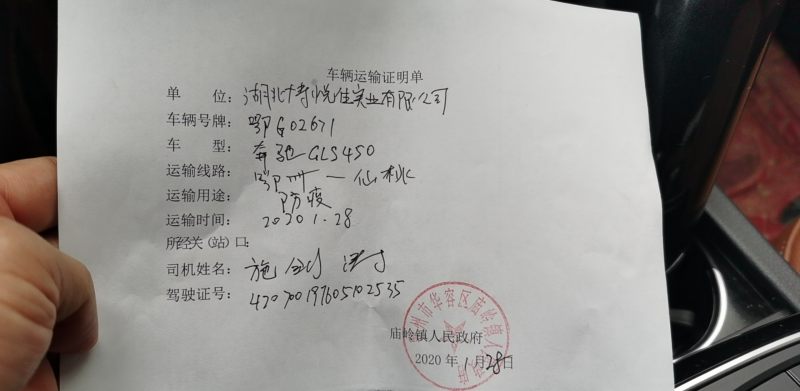 车辆运输证明单
单 位：湖北博悦佳实业有限公司
车辆号牌：鄂G02671
车 型：奔驰GLS450
运输线路：鄂州—仙桃
运输用途：防疫
运输时间：2020 1.28
所经关（站）口：
司机姓名：施
驾驶证号：420700197605102535
鄂州市华容区庙岭镇人民政府
庙岭镇人民政府
2020年1月28日